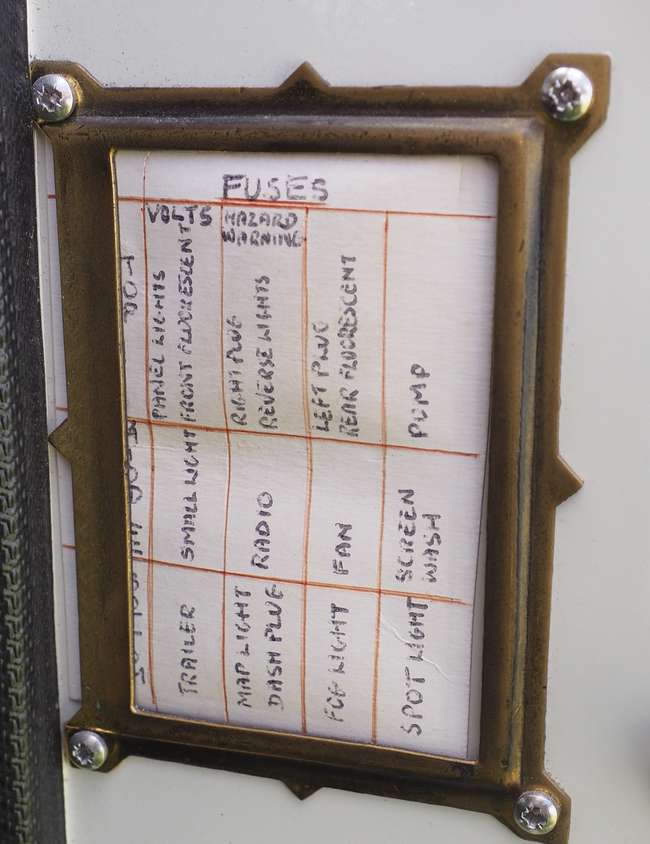 FUSES
VOLTS
HAZARD
WARNING
TRAILER
SMALL LIGHT
PANEL LIGHTS
FRONT FLUORESCENT
MAP LIGHT
DASH PLUG
RADIO
RIGHT PLUG
REVERSE LIGHTS
FOG LIGHT
FAN
LEFT PLUG
REAR FLUORESCENT
SPOT LIGHT
SCREEN
WASH
PUMP